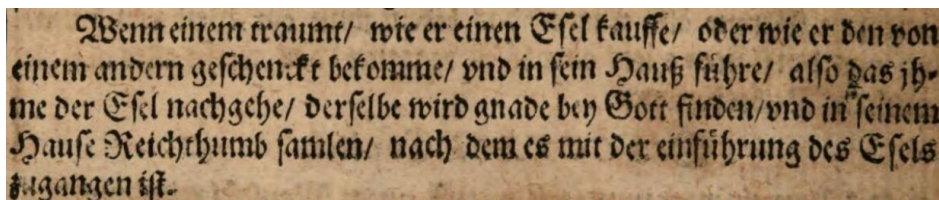 Wenn einem traumt/ wie er einen Esel kauffe/ oder wie er den von
einem andern geschenckt bekomme/ vnd in sein Hauß führe/ also das jh-
me der Esel nachgehe/ derselbe wird gnade bey Gott finden/vnd in seinem
Hause Reichthumb samlen/ nach dem es mit der einführung des Esels
zugangen ist.